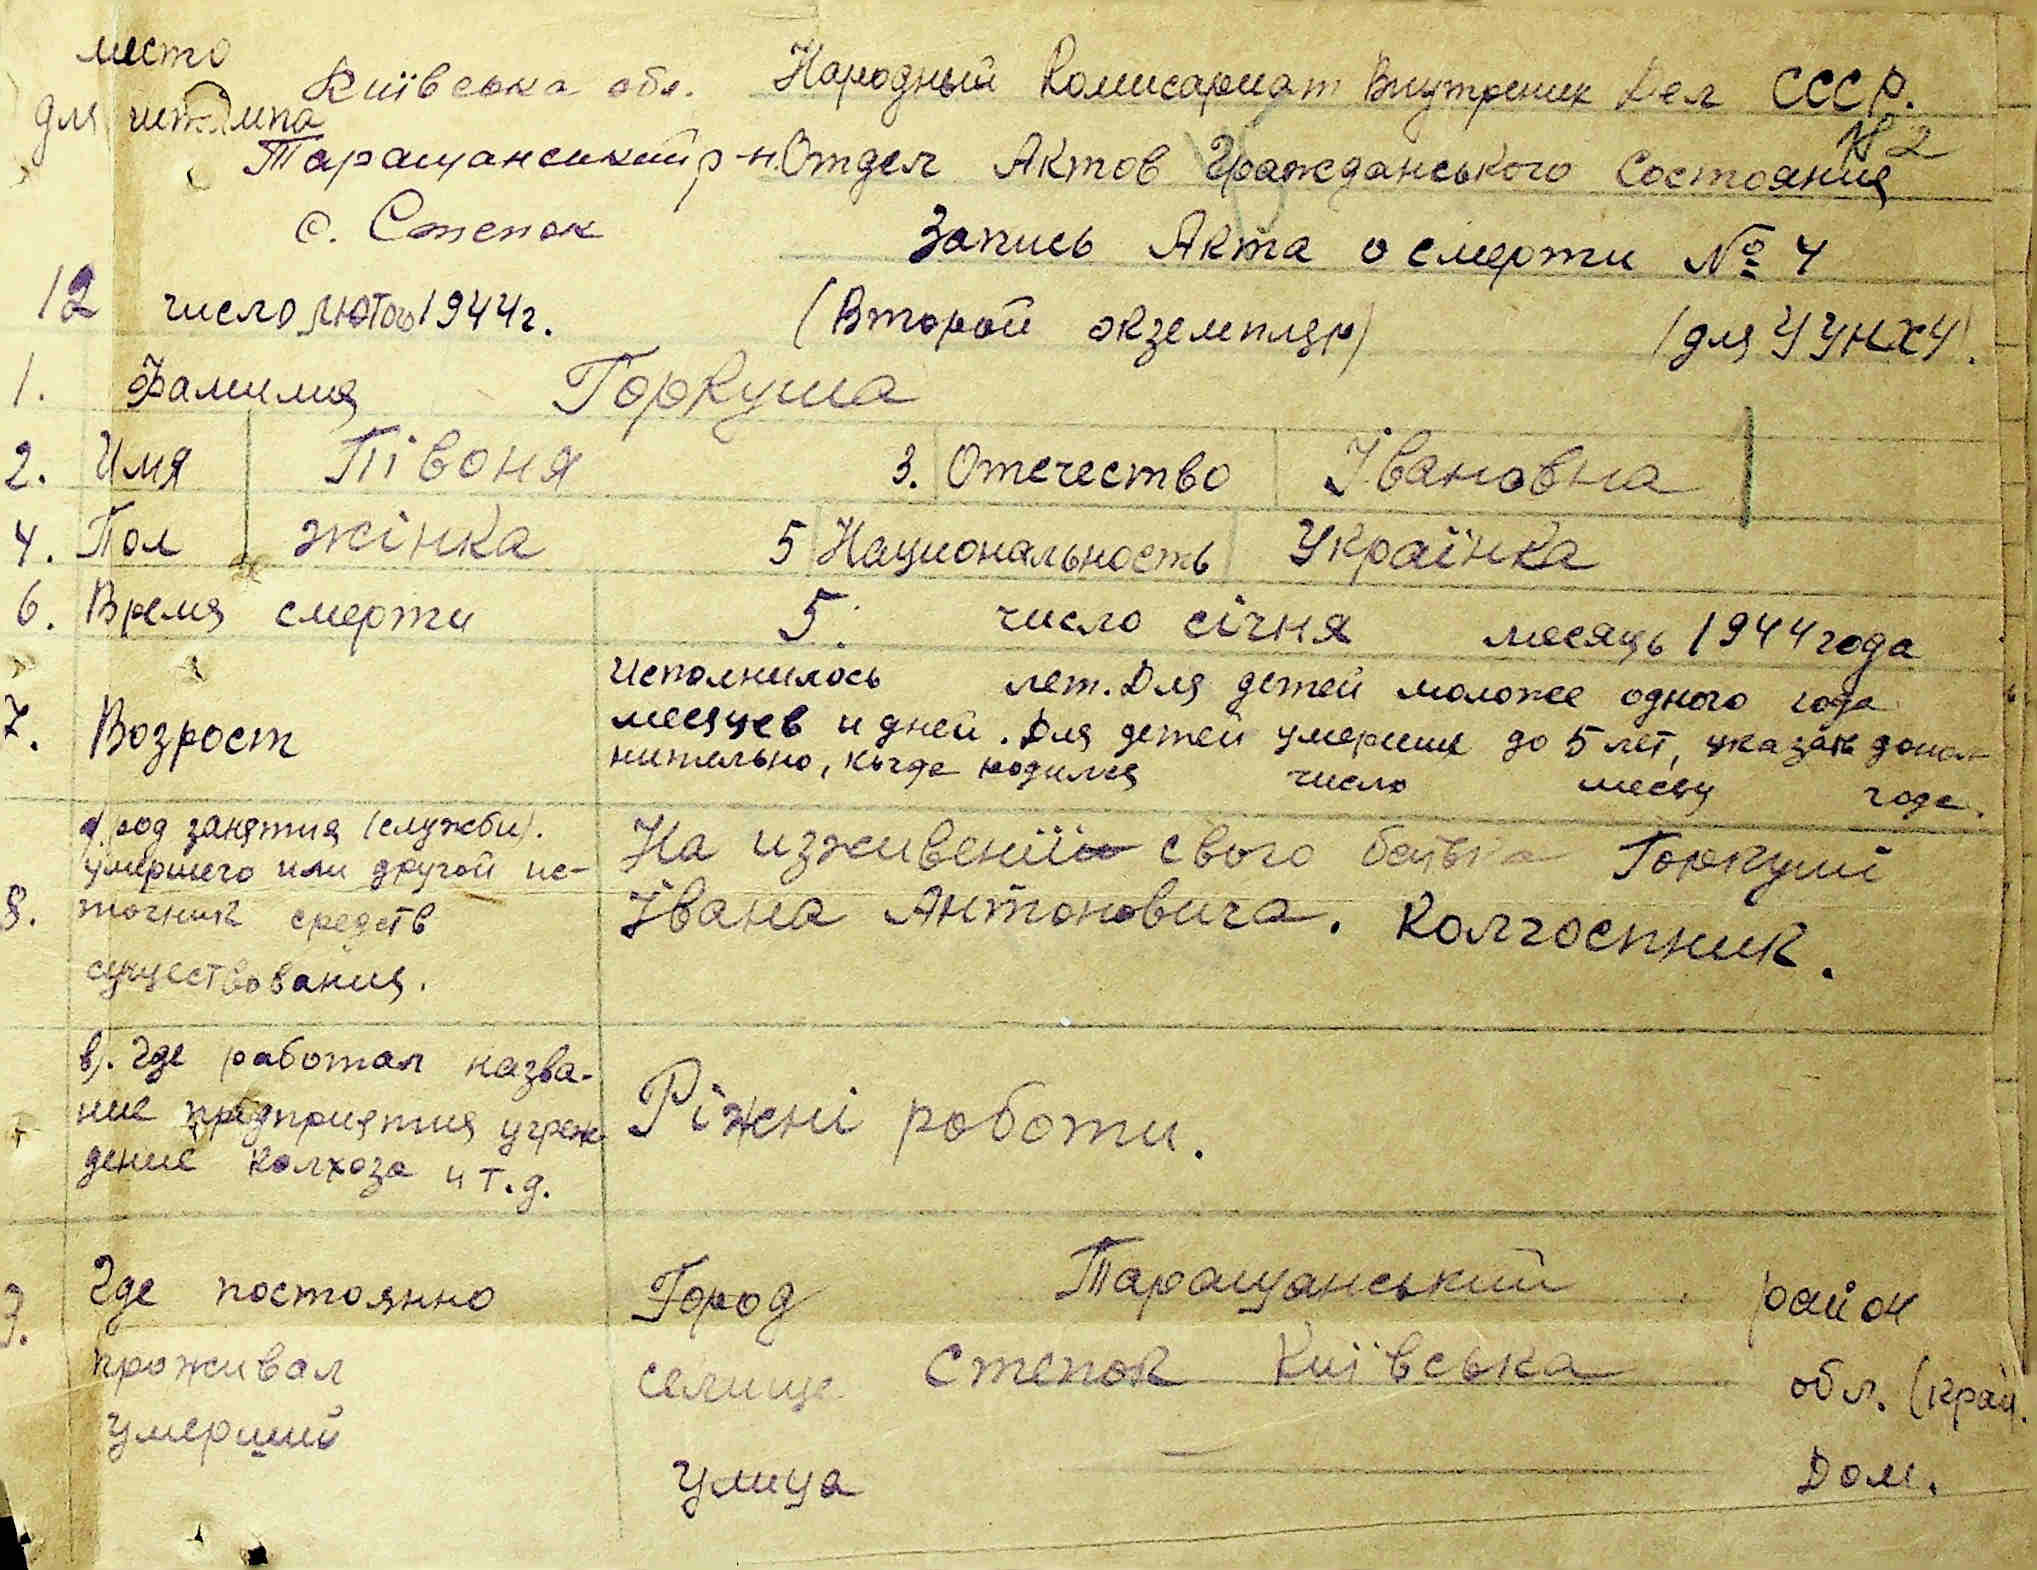 место
Київська обл. Народный Комисариат Внутреник Дел СССР.
для штампа
№2
Таращанський р-н. Отдел Актов Гражданського Состояния
с. Степок Запись Акта о смерти № 4
12 число лютого 1944г. (Второй экземпляр) (для УУНХУ).
1. Фамилия Горкуша
2. Имя Півоня 3. Отечество Івановна
4. Пол жінка 5 Национальность Українка
6. Время смерти 5. число січня месяць 1944 года
7. Возрост
Исполнилось лет. Для детей моложе одного года
месяцев и дней. Для детей умерших до 5 лет, указать допол-
нительно, когда родился число месяц года.
8. а) род занятия (службы).
умершего или другой ис-
точник средств
существования.
На изживенії свого батька Горкуші
Івана Антоновича. Колгоспник.
в). Где работал назва-
ние предприятия учреж
дение колхоза и т.д.
Ріжні роботи.
9. Где постоянно
проживал
умерший
Город Таращанський район
селище Степок Київська обл. (край.
Улица Дом.